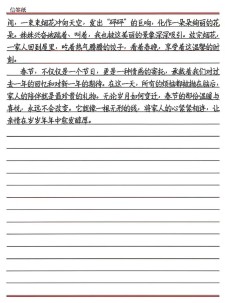 信笺纸
间，一束束烟花冲向天空，发出“砰砰”的巨响，化作一朵朵绚丽的花
朵。妹妹兴奋地跳着、叫着，我也被这美丽的景象深深吸引。放完烟花，
一家人回到屋里，吃着热气腾腾的饺子，看着春晚，享受着这温馨的时
刻。
春节，不仅仅是一个节日，更是一种情感的寄托，承载着我们对过
去一年的回忆和对新一年的期待。在这一天，所有的烦恼都被抛在脑后，
家人的陪伴就是最珍贵的礼物。无论岁月如何变迁，春节的那份温暖与
喜悦，永远不会改变。它就像一根无形的线，将家人的心紧紧相连，让
亲情在岁岁年年中愈发醇厚。